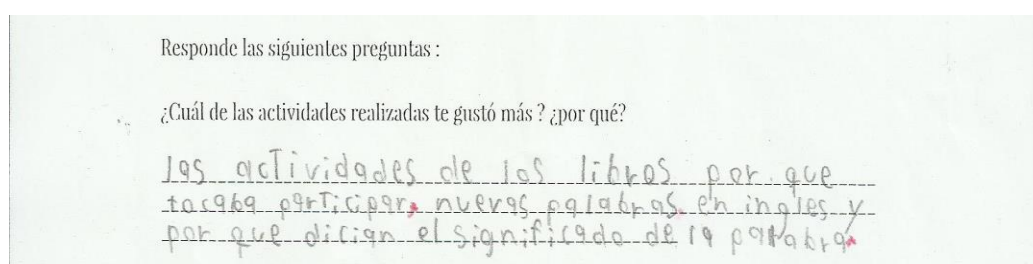 Responde las siguientes preguntas :
¿Cuál de las actividades realizadas te gustó más ? ¿por qué?
las actividades de los libros por que
tocaba participar, nuevas palabras en ingles y
por que dician el significado de la palabra